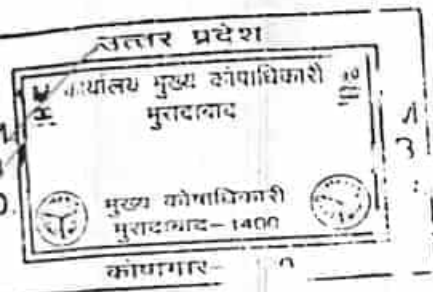 उत्तर प्रदेश
कार्यालय मुख्य कोषाधिकारी
मुरादाबाद
मुख्य कोषाधिकारी
मुरादाबाद- 1400
कोषागार-